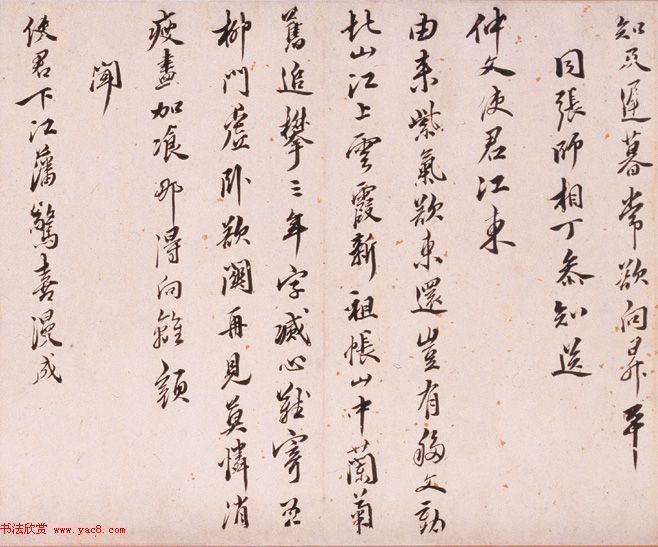 知遲暮常欲向昇平
同張師相丁叅知送
仲文使君江東
由来紫氣欲東還豈有移文勒
北山江上雲霞新祖帳山中蘭菊
舊追攀三年字滅心難寄五
柳門虛卧欲關再見莫憐消
瘦盡加飡那得向離顏
聞
使君下江藩驚喜漫成
书法欣赏 www.yac8.com